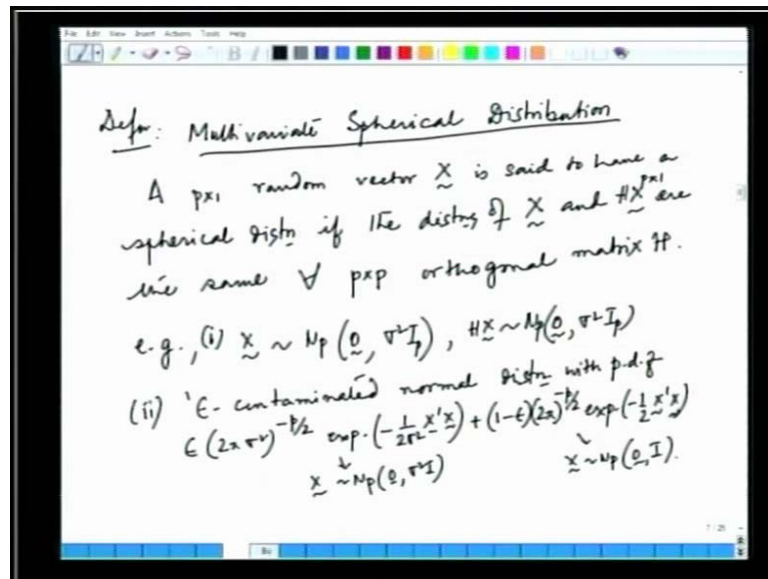 File Edit View Insert Actions Tools Help
Defn: Multivariate Spherical Distribution
A p×1 random vector X̰ is said to have a
spherical distn if the distns of X̰ and HX̰^{p×1} are
the same ∀ p×p orthogonal matrix H.
e.g., (i) X̰ ~ Np (0̰, σ²Ip), HX̰ ~ Np(0̰, σ²Ip)
(ii) 'ϵ-contaminated normal distn with p.d.f
ϵ (2πσ²)^{-p/2} exp.(-1/2σ² x̰'x̰) + (1-ϵ)(2π)^{-p/2} exp.(-1/2 x̰'x̰)
↓ ↓
X̰ ~Np(0̰, σ²I) X̰ ~Np(0̰, I).